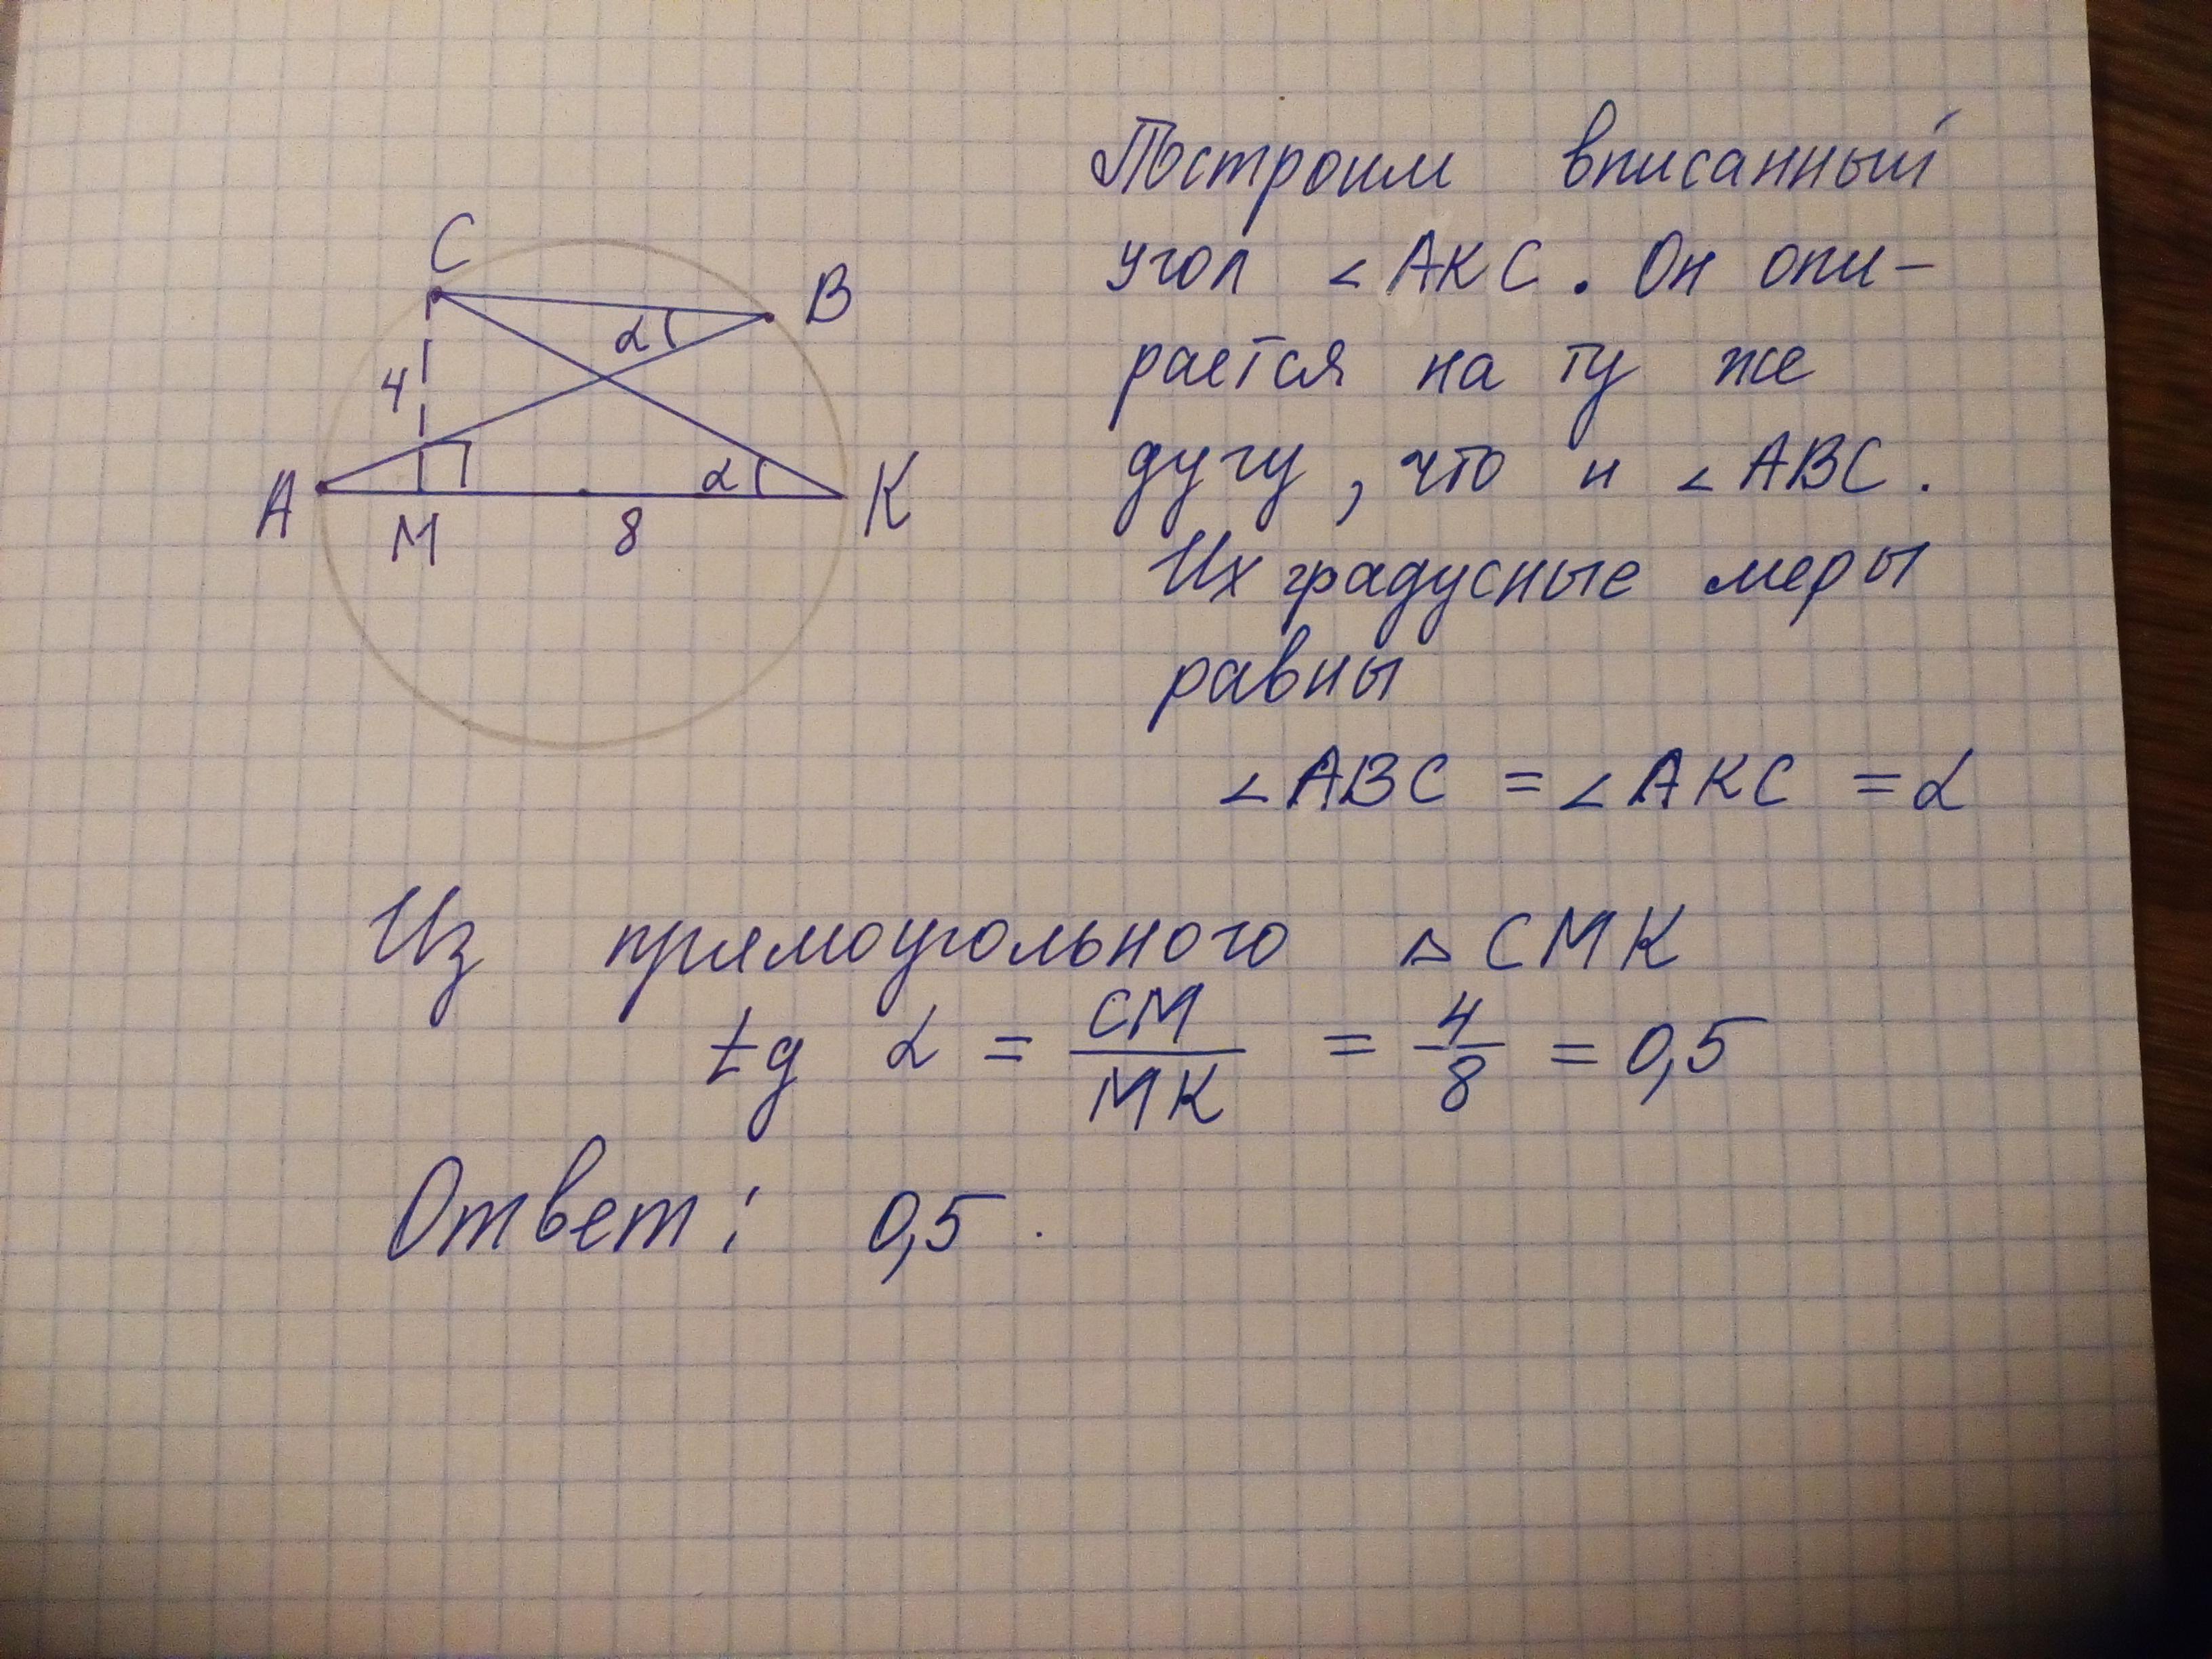 C
B
α
4
A
M
8
α
K
Построим вписанный
угол ∠AKC. Он опи-
рается на ту же
дугу, что и ∠ABC.
Их градусные меры
равны
∠ABC = ∠AKC = α
Из прямоугольного △CMK
tg α = CM/MK = 4/8 = 0,5
Ответ: 0,5.